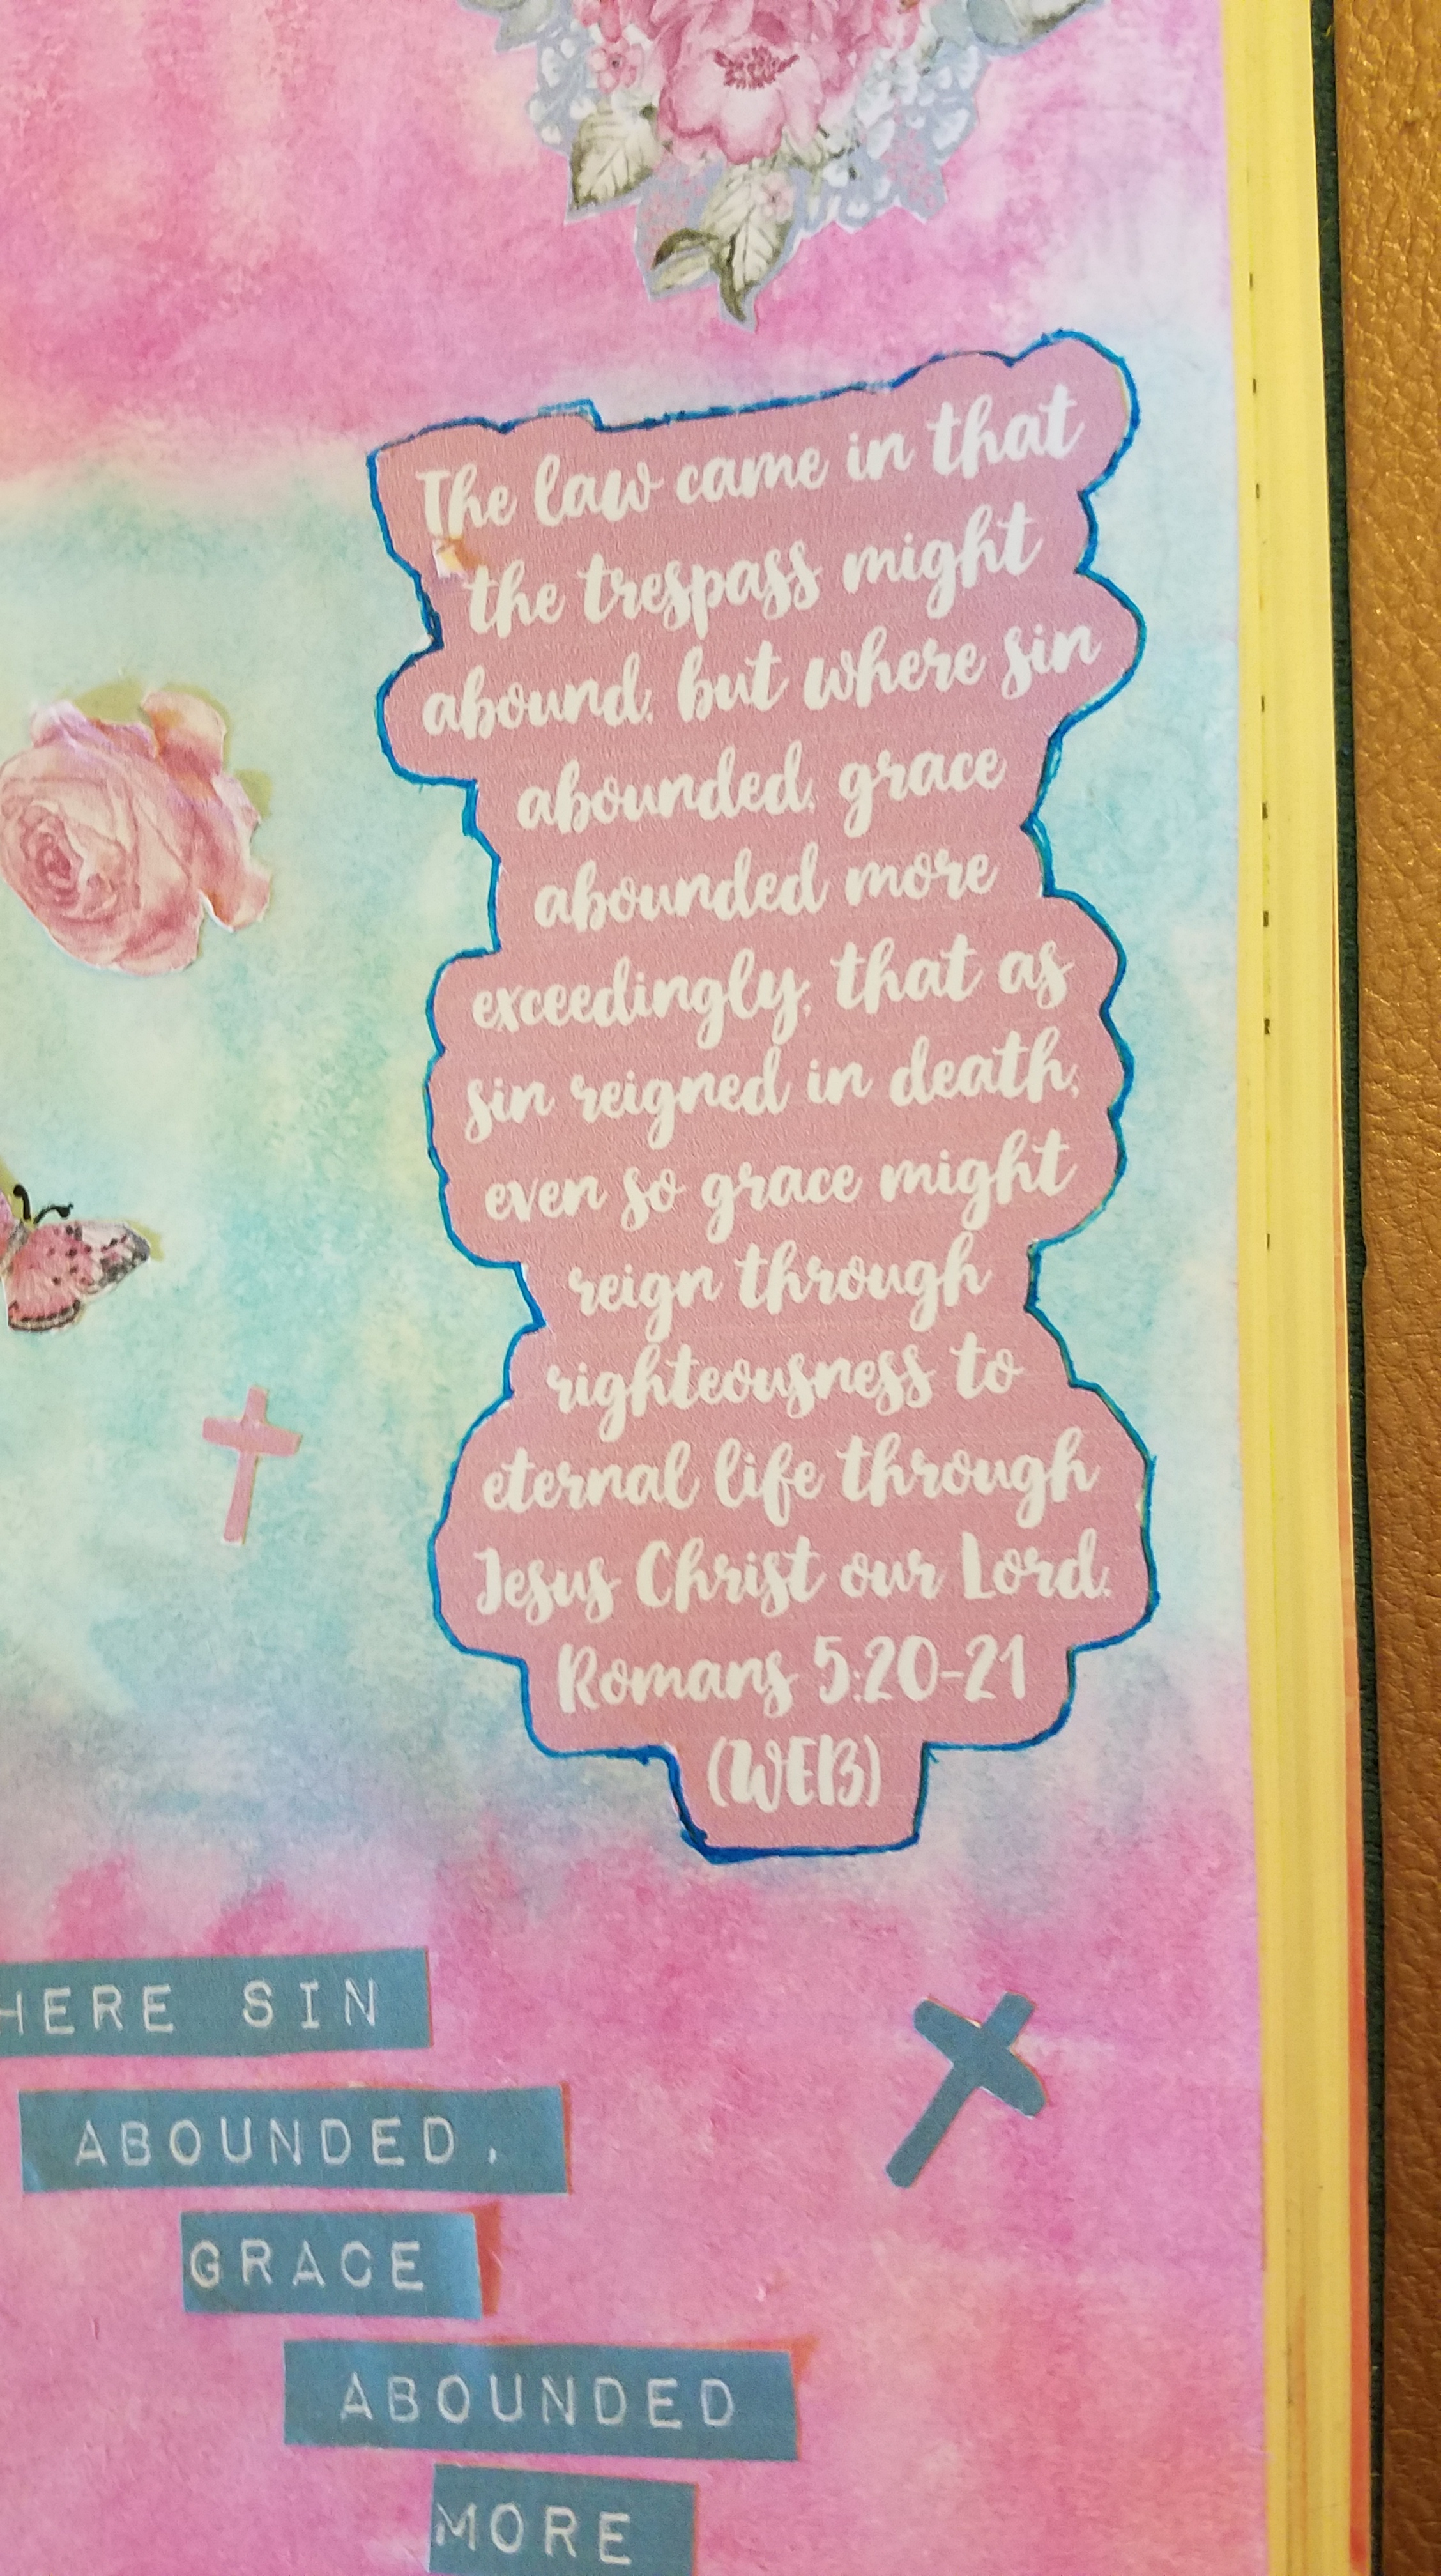 The law came in that
the trespass might
abound; but where sin
abounded, grace
abounded more
exceedingly, that as
sin reigned in death,
even so grace might
reign through
righteousness to
eternal life through
Jesus Christ our Lord.
Romans 5:20-21
(WEB)
HERE SIN
ABOUNDED,
GRACE
ABOUNDED
MORE